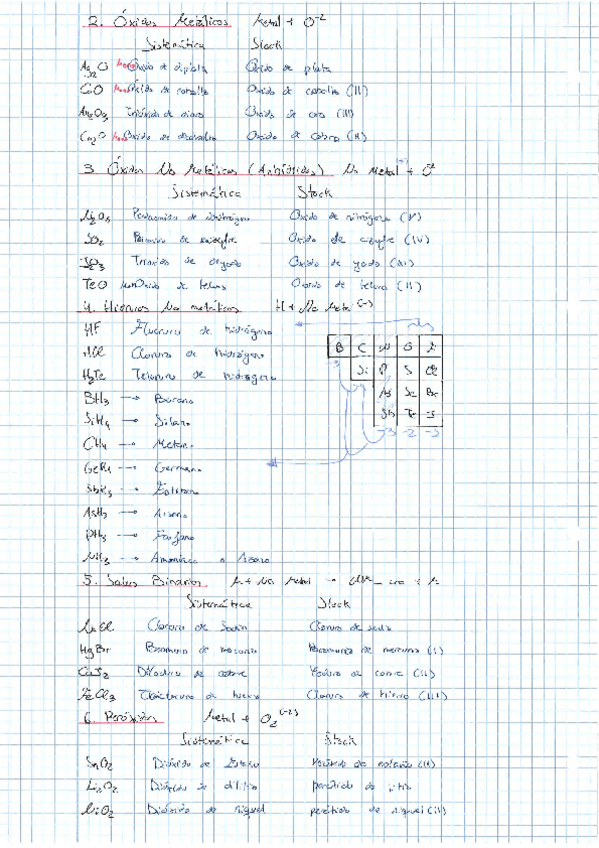 2. Óxidos Metálicos Metal + O-2
Sistemática Stock
Ag2O Monóxido de diplata Óxido de plata
CoO Monóxido de cobalto Óxido de cobalto (II)
Au2O3 Trióxido de Óxido de oro (III)
Cu2O Óxido de cobre
3. Óxidos No Metálicos (Anhídridos) No Metal + O
Sistemática Stock
N2O5 Pentaóxido de dinitrógeno Óxido de nitrógeno (V)
SO2 de azufre Óxido de azufre (IV)
Trióxido de Óxido de yodo
TeO monóxido de teluro Óxido de teluro (II)
4. Hidruros No metálicos H + No Metal (-)
HF Fluoruro de hidrógeno
HCl Cloruro de hidrógeno
H2Te Telururo de hidrógeno
B C N O F
Si P S Cl
As Se Br
Sb Te I
-3 -2 -1
BH3 → Borano
SiH4 → Silano
CH4 → Metano
GeH4 → Germano
SbH3 →
AsH3 → Arsano
PH3 → Fosfano
NH3 → Amoniaco o Azano
5. Sales Binarias M + No Metal →
Sistemática Stock
NaCl Cloruro de Sodio Cloruro de sodio
HgBr Bromuro de mercurio Bromuro de mercurio (I)
CuI2 Diioduro de cobre Ioduro de cobre (II)
FeCl3 Tricloruro de hierro Cloruro de hierro (III)
6. Peróxidos Metal + O2(-2)
Sistemática Stock
SnO2 Dióxido de Estaño Peróxido de estaño (II)
Li2O2 Dióxido de dilitio peróxido de litio
NiO2 Dióxido de niquel peróxido de niquel (II)